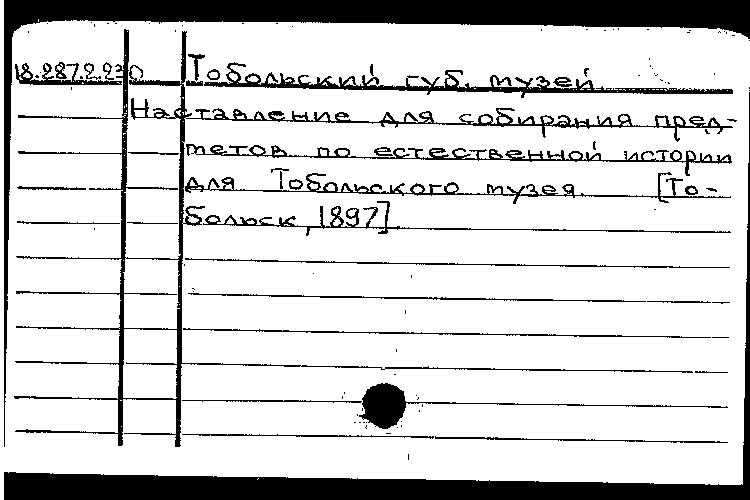 18.287.2.230 Тобольский губ. музей.
Наставление для собирания пред-
метов по естественной истории
для Тобольского музея. [То-
больск, 1897]